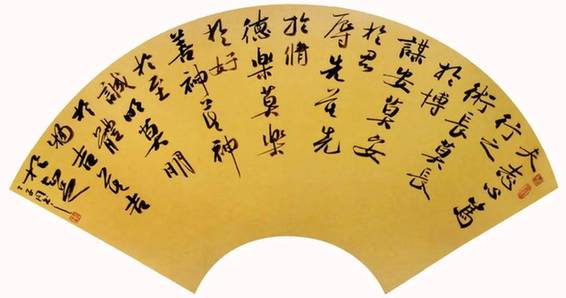 夫志心篤
行之
術長莫長
於博
謀安莫安
於忍
辱先莫先
於脩
德樂莫樂
於好
善神莫神
於至
誠明莫明
於體
物吉莫吉
於知足